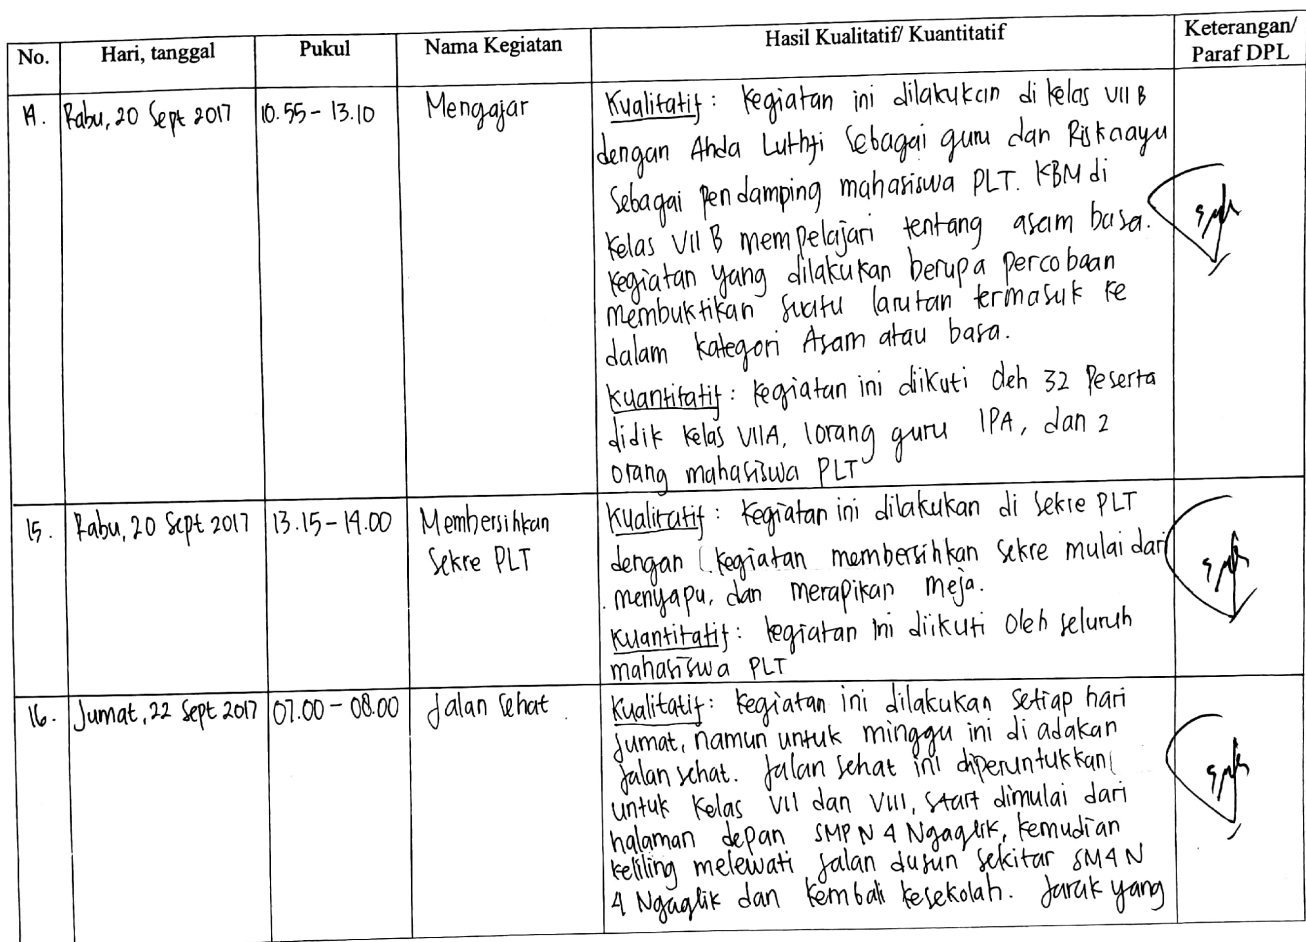 No. Hari, tanggal Pukul Nama Kegiatan Hasil Kualitatif/ Kuantitatif Keterangan/
Paraf DPL
14. Rabu, 20 Sept 2017 10.55 - 13.10 Mengajar Kualitatif : Kegiatan ini dilakukan di kelas VII B
dengan Ahda Luthfi sebagai guru dan Riskaayu
sebagai pendamping mahasiswa PLT. KBM di
kelas VII B mempelajari tentang asam basa.
kegiatan yang dilakukan berupa percobaan
membuktikan suatu larutan termasuk ke
dalam kategori Asam atau basa.
Kuantitatif : kegiatan ini diikuti oleh 32 Peserta
didik kelas VIIA, 1orang guru IPA, dan 2
orang mahasiswa PLT
15. Rabu, 20 Sept 2017 13.15 - 14.00 Membersihkan Kualitatif : Kegiatan ini dilakukan di Sekre PLT
Sekre PLT dengan kegiatan membersihkan sekre mulai dari
menyapu, dan merapikan meja.
Kuantitatif : kegiatan ini diikuti oleh seluruh
mahasiswa PLT
16. Jumat, 22 Sept 2017 07.00 - 08.00 Jalan sehat Kualitatif : kegiatan ini dilakukan setiap hari
Jumat, namun untuk minggu ini di adakan
jalan sehat. Jalan sehat ini diperuntukkan
untuk kelas VII dan VIII, start dimulai dari
halaman depan SMP N 4 Ngaglik, kemudian
keliling melewati jalan dusun sekitar SM4 N
4 Ngaglik dan kembali kesekolah. Jarak yang